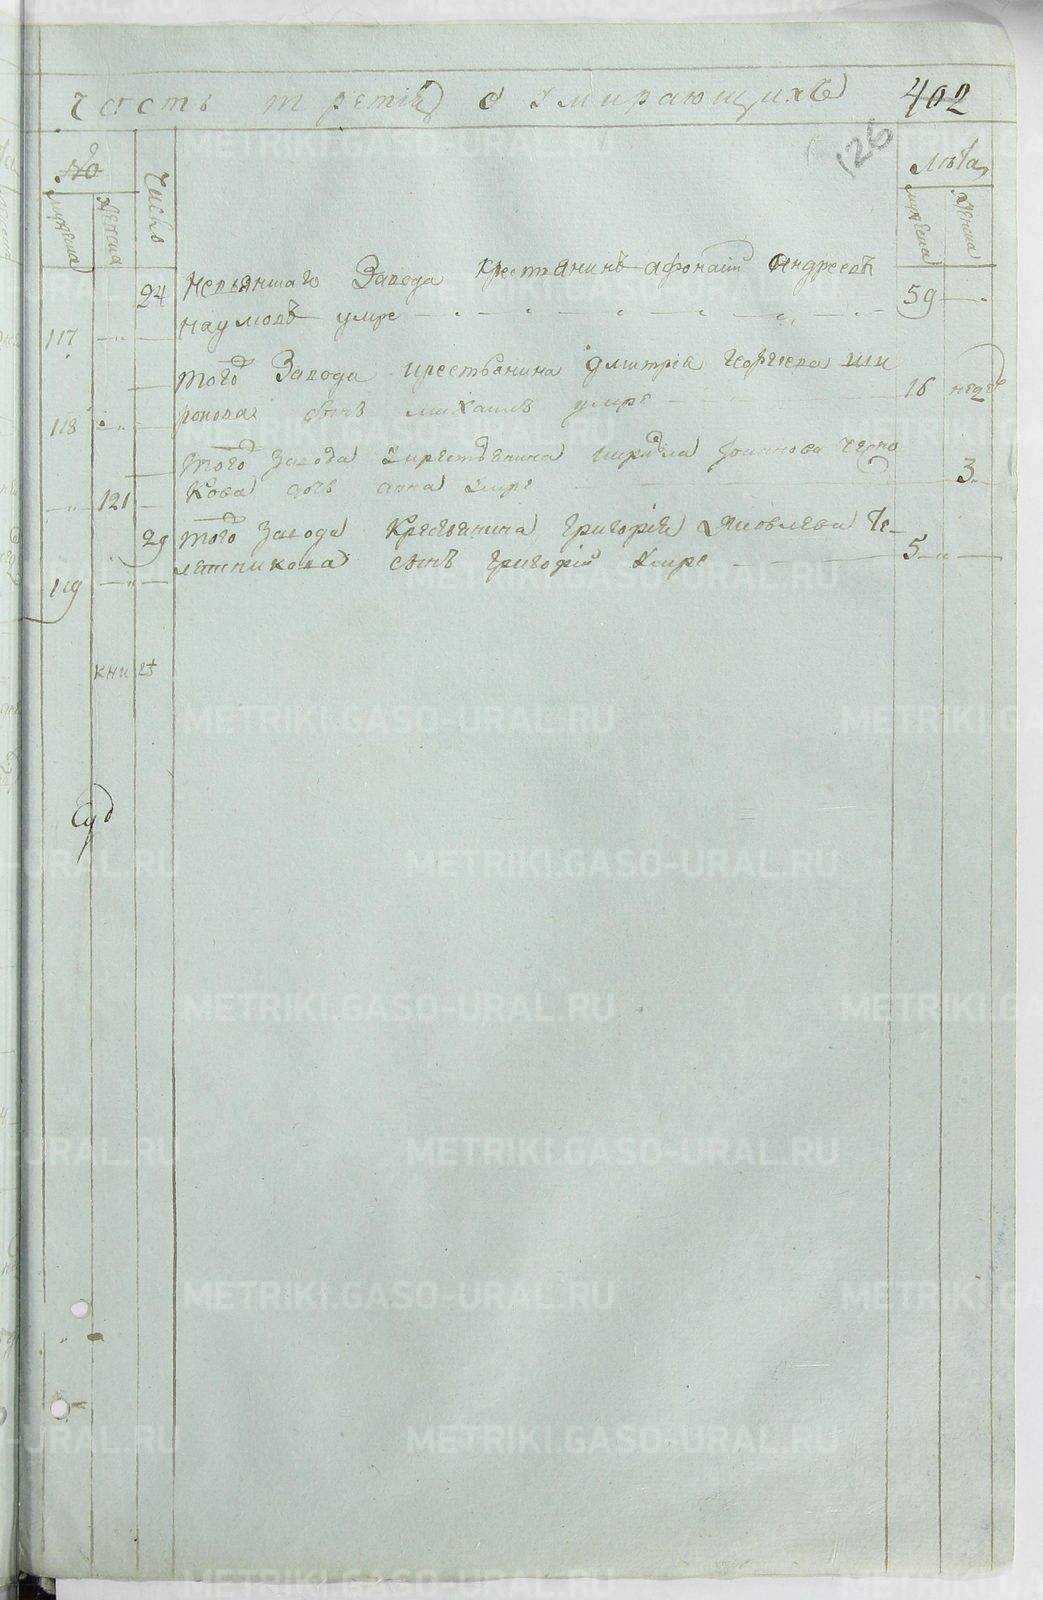 Часть третія о Умирающихъ 402
126
№ Число Лѣта
мужеска женска мужеска женска
24 Невьянскаго Завода крестьянинъ афонасій Андреевъ
117 Наумовъ умре 59
того Завода крестьянина Дмитрія Георгиева Ши
118 рокова сынъ михаилъ умре 16 недѣ
того Завода крестьянина Кирила Иоаннова Черно
121 Кова дочь анна Умре 3
29 того Завода Крестьянина Григорія Яковлева Те-
119 лешникова сынъ Григорій Умре 5
кни
METRIKI.GASO-URAL.RU